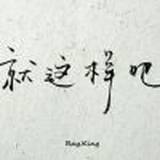 就这样吧
RagKing